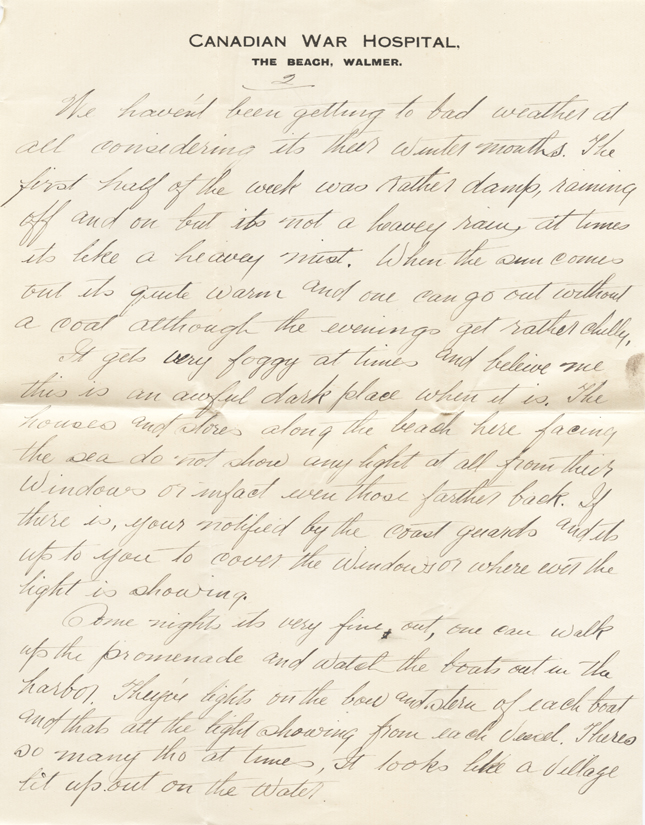 CANADIAN WAR HOSPITAL,
THE BEACH, WALMER.
2
We haven't been getting to bad weather at
all considering its their winter months. The
first half of the week was rather damp, raining
off and on but its not a heavey rain, at times
its like a heavey mist. When the sun comes
out its quite warm and one can go out without
a coat although the evenings get rather chilly.
It gets very foggy at times and beleive me
this is an awful dark place when it is. The
houses and stores along the beach here facing
the sea do not show any light at all from their
windows or infact even those farther back. If
there is, your notified by the coast guards and its
up to you to cover the window or where ever the
light is showing.
Some nights its very fine out, one can walk
up the promenade and watch the boats out in the
harbor. They're lights on the bow and stern of each boat
and thats all the light showing from each vessel. Theres
so many tho at times, It looks like a village
lit up out on the water.